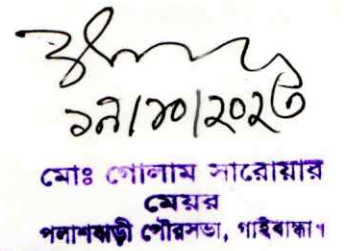 ১৭/১০/২০২৩
মোঃ গোলাম সারোয়ার
মেয়র
পলাশবাড়ী পৌরসভা, গাইবান্ধা।